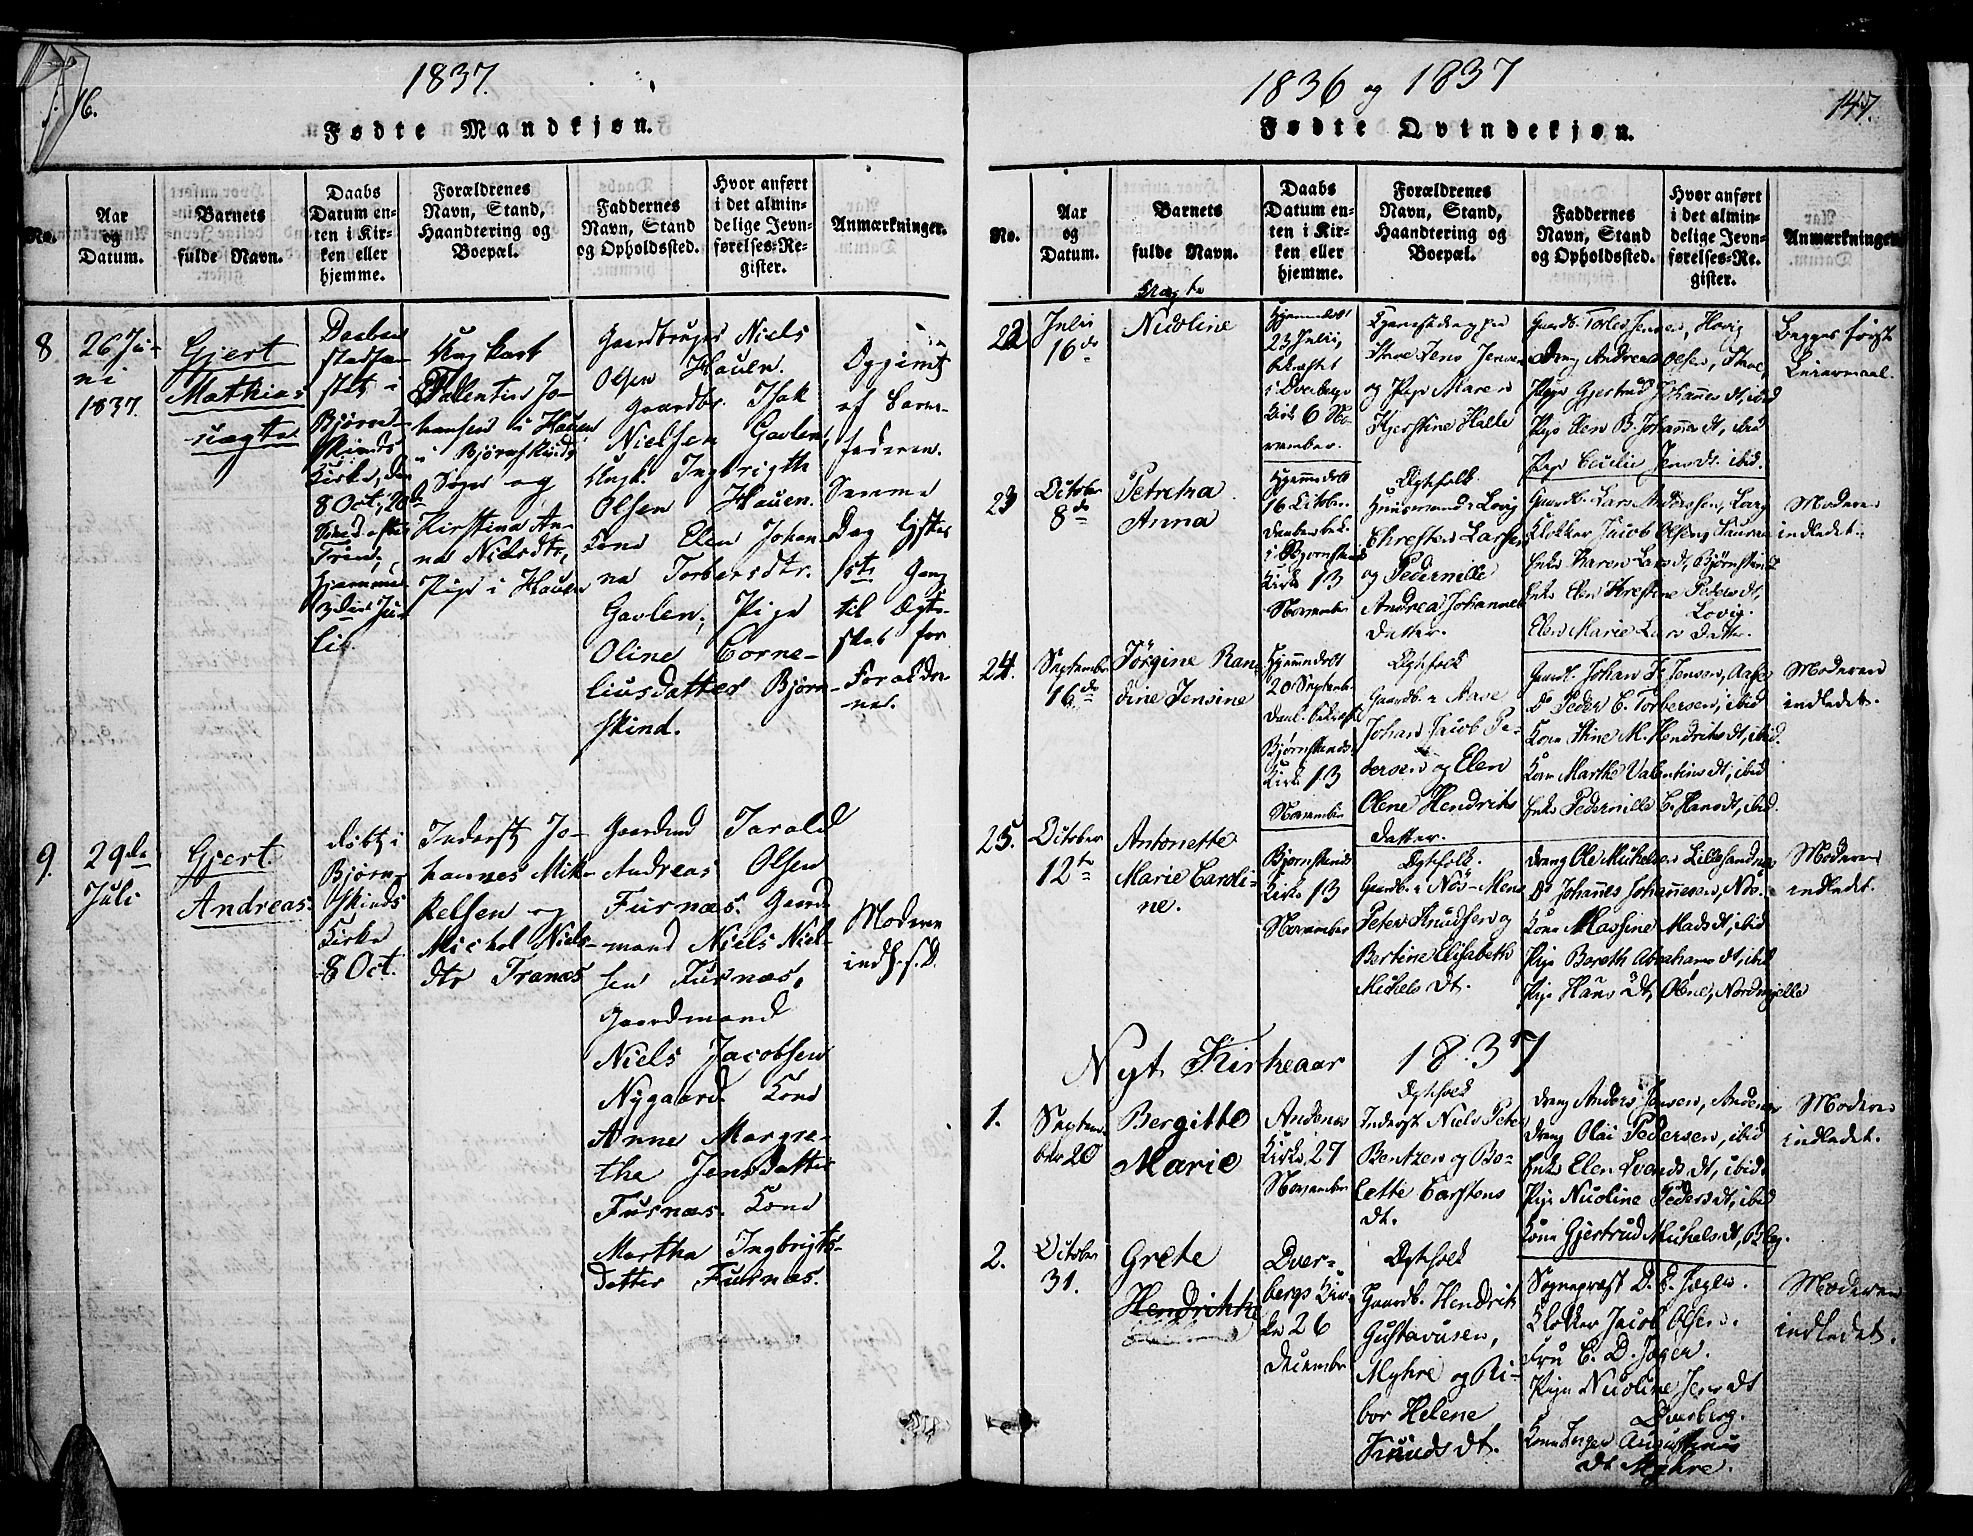 16.
1837.
Fødte Mandkjøn.
No.
Aar
og
Datum.
Barnets
fulde Navn.
Daabs
Datum en-
ten i Kir-
ken eller
hjemme.
Forældrenes
Navn, Stand,
Haandtering og
Boepæl.
Faddernes
Navn, Stand
og Opholdssted.
Hvor anført
i det almin-
delige Jevn-
førelses-Re-
gister.
Anmærkninger.
8
26 Ju-
ni
1837.
Gjert
Mathias
uægte
Daaben
stadfæ-
stet i
Bjørn-
skinds
Kirke, den
8 Oct.
hjemme
3die Ju-
lii.
Ungkarl
Valentin Jo-
hansen i Hauen
i Bjørnskinds
Sogn og
Kirstina An-
na Nielsdtr,
Pige i Hauen
Gaardbruger Niels
Olsen Hauen.
Gaardbr. Isak
Nielsen Gavlen,
Ungk. Ingbrigth
Olsen Hauen.
Kone Elen Johan-
na Torbersdtr.
Gavlen; Pige
Oline Corne-
liusdatter Bjørn-
skind.
Opgivet
af Barne-
faderen.
Samme
Dag lystes
1ste Gang
til Ægte-
skab for
Foræld re-
ne.
9.
29de
Juli
Gjert
Andreas.
døbt i
Bjørn-
skinds
Kirke
8 Oct.
Inderst Jo-
hannes Mik-
kelsen og
Michel Niels-
dtr Tranæs
Gaardmd Tarald
Andreas Olsen
Furnæs. Gaard-
mand Niels Niel-
sen Furnæs,
Gaardmand
Niels Jacobsen
Nygaard. Kone
Anne Margre-
the Jensdatter
Furnæs. Kone
Martha Ingbrigts-
datter Furnæs.
Moderen
indl. s. D.
1836 og 1837
147.
Fødte Qvindekjøn.
No.
Aar
og
Datum.
Barnets
fulde Navn.
Daabs
Datum en-
ten i Kir-
ken eller
hjemme.
Forældrenes
Navn, Stand,
Haandtering og
Boepæl.
Faddernes
Navn, Stand
og Opholdssted.
Hvor anført
i det almin-
delige Jevn-
førelses-Re-
gister.
Anmærkninger
22
Julii
16de
Uægte
Nicoline
Hjemmedøbt
23 Julii
bekræftet
i Dverbergs
Kirke 6 No-
vember.
Jens Jensen
og Pige Maren
Kjerstine Halle
Gaardb. Torles Jensen, Hovig
Dreng Andreas Olsen,
Pige Gjertrud Johannesdt, ibid
Pige Elen B. Johannsdt, ibid
Pige Cecilie Jensdt. ibid.
Begges første
Leiermaal.
23
October
8de
Petrikka
Anna
Hjemmedøbt
16 October.
Daaben bek.
i Bjørnskinds
Kirke 13
November
Ægtefolk
Huusmand i Lovig
Christen Larsen
og Pedernille
Andrea Johannes
Datter.
Gaardb. Lars Andersen, Lovig
Klokker Jacob Olsen,
Enke Karen Larsdt, Bjørnskind
Enke Elen Kirstine Pedersdt,
Lovig.
Elen Marie Lars Datter.
Moderen
indledet.
24.
September
16de
Jørgine Ran-
dine Jensine
Hjemmedøbt
20 Septemb.
Daab. bekræftet
Bjørnskinds
Kirke 13
November
Ægtefolk
Gaardb. i Aase
Johan Jacob Pe-
dersen og Elen
Olene Hendriks
Datter.
Gaardb. Johan F. Jensen, Aase
Do Peder C. Torbersen, ibid
Kone Stine M. Hendriksdt, ibid.
Kone Marthe Valentinsdt, ibid
Enke Pedernille C. Hansdt, ibid.
Moderen
indledet.
25.
October
12te
Antonette
Marie Caroli-
ne.
Bjørnskinds
Kirke 13
November
Ægtefolk.
Gaardb. i Nøs-Mens
Peter Knudsen og
Bertine Elisabeth
Michels dt.
Dreng Ole Michelsen Lillesandnes
Do Johannes Johannesen, Nøs.
Kone Massine Madsdt, ibid
Pige Bereth Abrahamsdt, ibid
Pige Hans dt, Olene, Nordmjelle
Moderen
indledet.
Nyt Kirkeaar 1837
1.
Septem-
ber 20
Bergitte
Marie
Andenæs
Kirke 27
November
Ægtefolk
Inderst Niels Peter
Bentzen og Bo-
lette Carstens
dt.
Dreng Anders Jensen, Andenæs
Dreng Olai Pedersen, ibid
Enke Elen Svends dt, ibid.
Pige Nicoline Pedersdt, ibid
Kone Gjertrud Michelsdt, Bleg.
Moderen
indledet.
2.
October
31.
Grete
Hendrikke
Dver-
bergs Kir-
ke 26
December
Ægtefolk
Gaardb. Hendrik
Gustavusen,
Myhre og Ri-
bor Helene
Knuds dt.
Sognepræst D. C. Jæger.
Klokker Jacob Olsen.
Fru C. D. Jæger.
Pige Nicoline Jensdt
Dverberg.
Kone Inger Augustinus
dt Myhre.
Moderen
indledet.